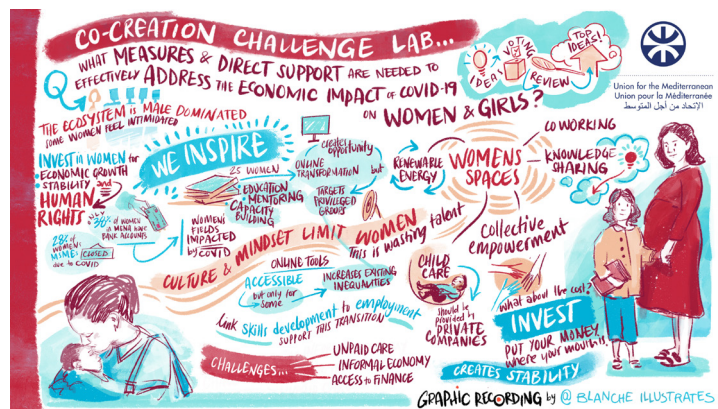 CO-CREATION CHALLENGE LAB...
WHAT MEASURES & DIRECT SUPPORT ARE NEEDED TO
EFFECTIVELY ADDRESS THE ECONOMIC IMPACT OF COVID-19
ON WOMEN & GIRLS?
IDEAS
VOTING
REVIEW
TOP IDEAS!
Union for the Mediterranean
Union pour la Méditerranée
الإتحاد من أجل المتوسط
THE ECOSYSTEM IS MALE DOMINATED
SOME WOMEN FEEL INTIMIDATED
INVEST in WOMEN for
ECONOMIC GROWTH
STABILITY and
HUMAN
RIGHTS
ONLY
38% of WOMEN
in MENA have
BANK ACCOUNTS
28% of
WOMENS
MSMES
CLOSED
due to COVID
WE INSPIRE
25 WOMEN
EDUCATION
MENTORING
CAPACITY
BUILDING
WOMENS
FIELDS
IMPACTED
by COVID
creates
opportunity
ONLINE
TRANSFORMATION
but
TARGETS
PRIVILEGED
GROUPS
RENEWABLE
ENERGY
WOMENS
SPACES
CO WORKING
KNOWLEDGE
SHARING
Collective
empowerment
CULTURE & MINDSET LIMIT WOMEN
This is wasting talent
ONLINE TOOLS
ACCESSIBLE
but only for
some
INCREASES EXISTING
INEQUALITIES
Link SKILLS development to employment
SUPPORT THIS TRANSITION
CHILD
CARE
should be
provided by
PRIVATE
COMPANIES
what about the cost?
INVEST
PUT YOUR MONEY
where your mouth is
CREATES STABILITY
CHALLENGES...
UNPAID CARE
INFORMAL ECONOMY
ACCESS to FINANCE
GRAPHIC RECORDING by @ BLANCHE ILLUSTRATES